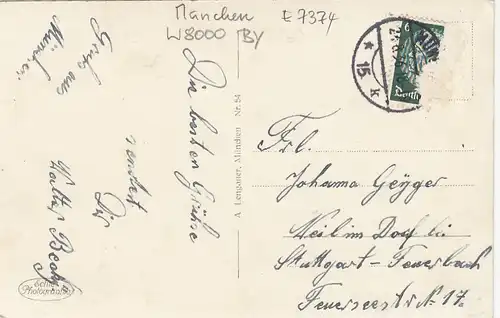 München
W8000 BY
E 7374
Gruß aus
München.
Die besten Grüsse
sendet
Dir
Walter
Echte
Photographie
A. Lengauer, München Nr. 54
* 15 K
6
Frl.
Johanna Geyger
Weil im Dorf bei
Stuttgart-Feuerbach
Feuerseestr. No 17.